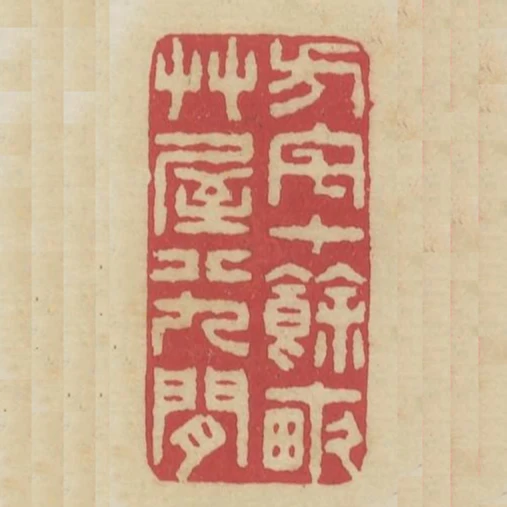 方宅十餘畝
艸屋八九閒